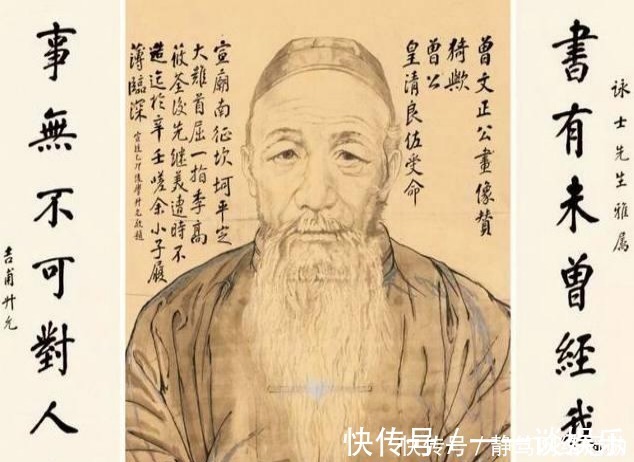 詠士先生雅屬
書有未曾經我
曾文正公畫像贊
猗歟
曾公
皇清良佐受命
宣廟南征坎坷平定
大難首屈一指李高
筱荃後先繼美遭時不
造迄於辛壬嗟余小子履
薄臨深
事無不可對人
吉甫升允
快传号
快传号